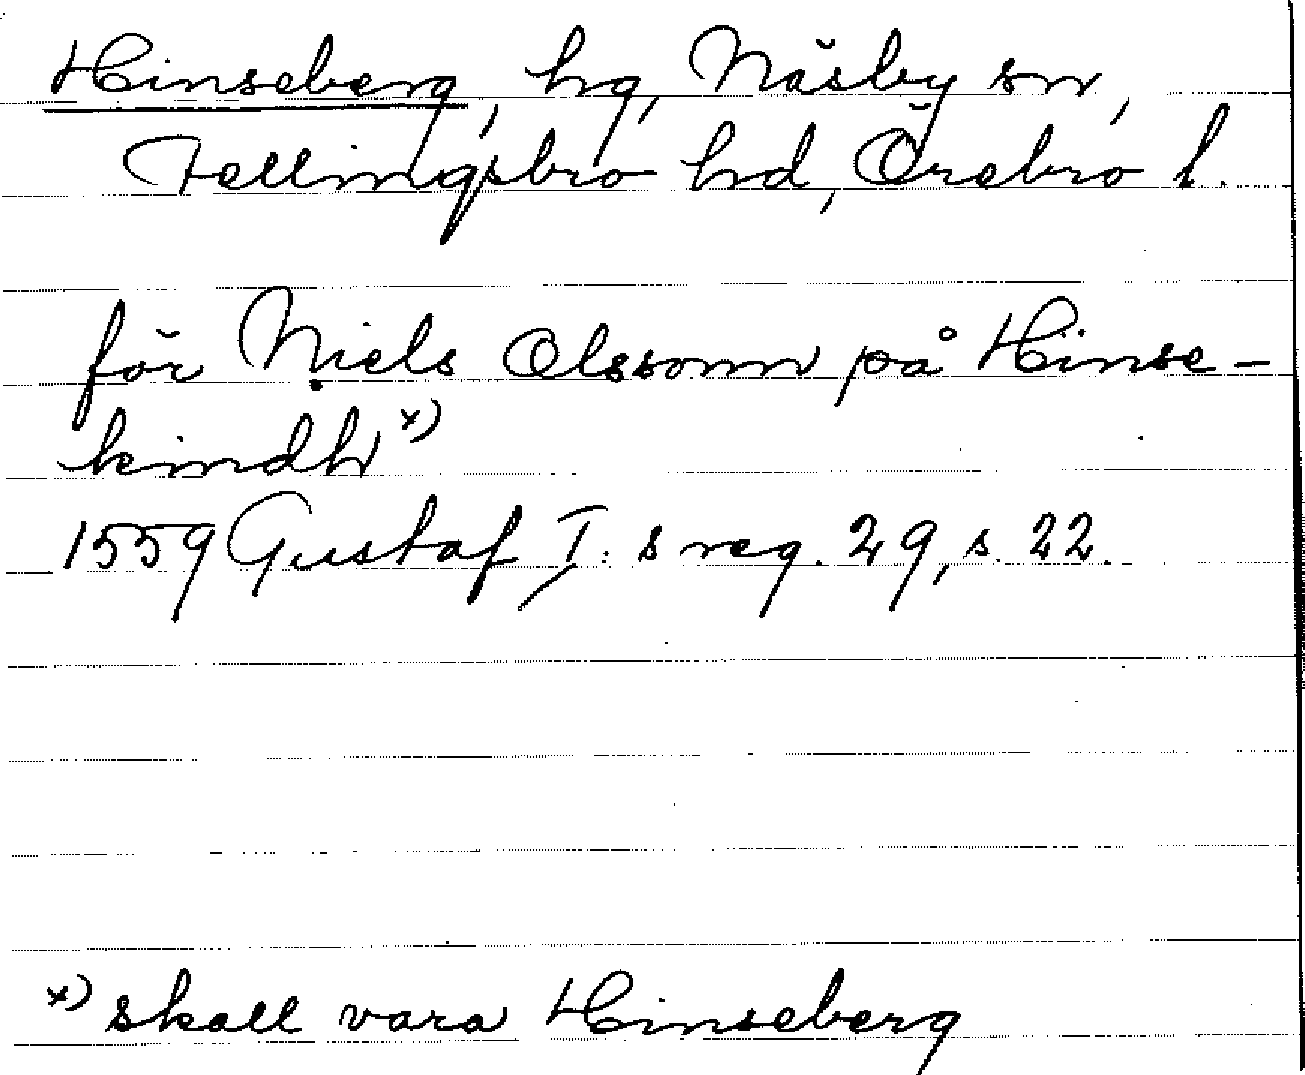 Hinseberg, hg, Näsby sn,
Fellingsbro hd, Örebro l.
för Niels Olssonn på Hinse-
kindh x)
1559 Gustaf I:s reg. 29, s. 22.
x) skall vara Hinseberg